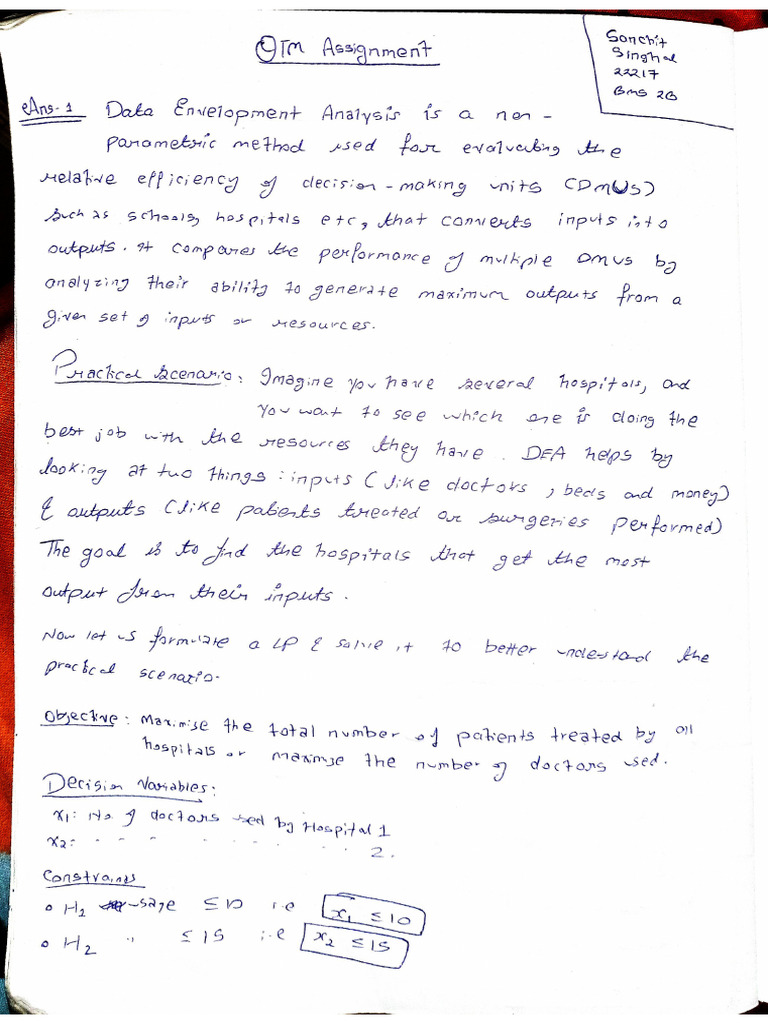 OTM Assignment
Sanchit
Singhal
22217
BMS 2B
Ans-1 Data Envelopment Analysis is a non-
parametric method used for evaluating the
relative efficiency of decision-making units (DMUs)
such as schools, hospitals etc, that converts inputs into
outputs. It compares the performance of multiple DMUs by
analyzing their ability to generate maximum outputs from a
given set of inputs or resources.
Practical Scenario: Imagine you have several hospitals, and
you want to see which one is doing the
best job with the resources they have. DEA helps by
looking at two things: inputs (like doctors, beds and money)
& outputs (like patients treated or surgeries performed)
The goal is to find the hospitals that get the most
output from their inputs.
Now let us formulate a LP & solve it to better understand the
practical scenario.
Objective: Maximise the total number of patients treated by all
hospitals or maximize the number of doctors used.
Decision Variables:
x1: No. of doctors used by Hospital 1
x2: " " " " " " 2.
Constraints
• H2 -sage ≤ 10 i.e x1 ≤ 10
• H2 " ≤ 15 i.e x2 ≤ 15